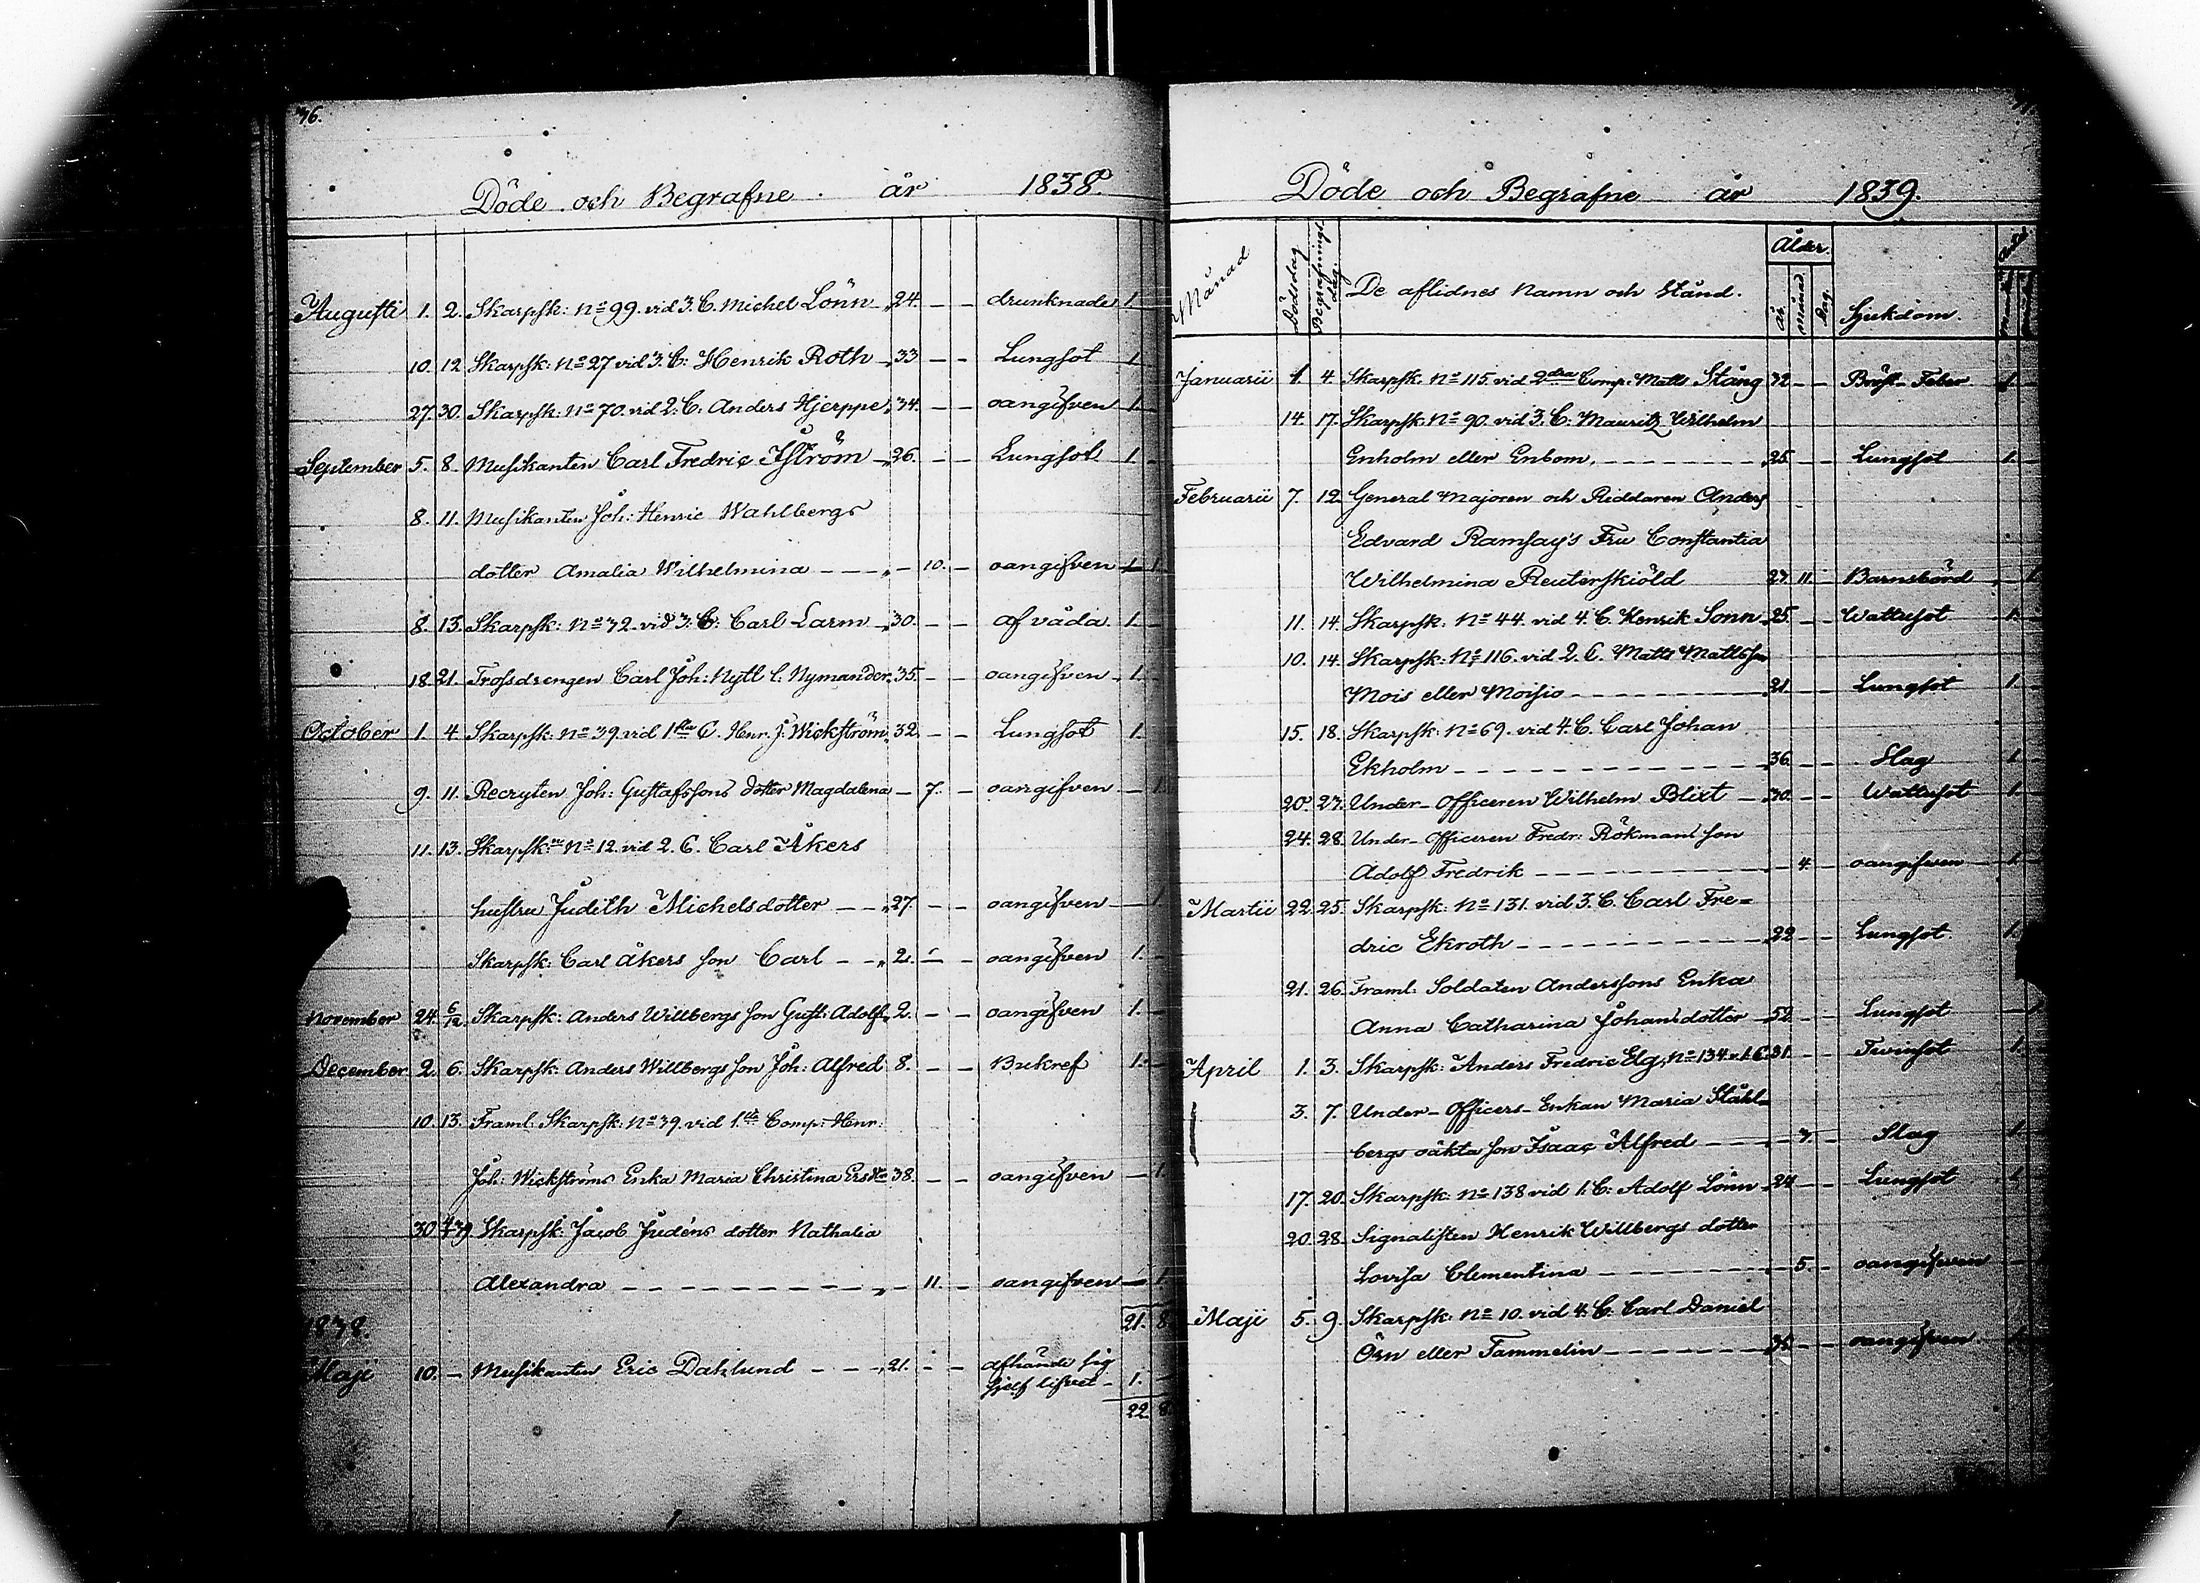 76.
Döde och Begrafne år 1838.
Augusti 1. 2. Skarpsk: No 99. vid 3. C. Michel Lönn 24. — — drunknade 1.
10. 12. Skarpsk: No 27 vid 3. C: Henrik Roth 33 — — Lungsot 1.
27. 30. Skarpsk: No 70. vid 2. C. Anders Hjerppe 34. — — oangifven 1.
September 5. 8. Musikanten Carl Fredric Iström 26. — — Lungsot 1.
8. 11. Musikanten Joh: Henric Wahlbergs
dotter Amalia Wilhelmina — — — 10. — oangifven — 1.
8. 13. Skarpsk: No 32. vid 3. C: Carl Larm 30. — — af våda 1.
18. 21. Trossdrengen Carl Joh: Nytl l. Nymander 35. — — oangifven 1.
October 1. 4. Skarpsk: No 39. vid 1sta C. Henr. J. Wickström 32. — — Lungsot 1.
9. 11. Recryten Joh: Gustafssons dotter Magdalena — 7. — oangifven — 1.
11. 13. Skarpsk: No 12. vid 2. C. Carl Åkers
hustru Judith Michelsdotter — — 27. — — oangifven — 1.
Skarpsk: Carl Åkers son Carl — — 2. — — oangifven 1.
November 24. 6/12 Skarpsk: Anders Willbergs son Gust: Adolf 2. — — oangifven 1.
December 2. 6. Skarpsk: Anders Willbergs son Joh: Alfred 8. — — Bukref 1. —
10. 13. Framl. Skarpsk: No 39. vid 1sta Comp: Henr:
Joh: Wickströms Enka Maria Christina Ersdtr 38. — — oangifven — 1.
30 4/1 39. Skarpsk: Jacob Judéns dotter Nathalia
Alexandra — — — — — — — — 11. — oangifven — 1.
1838. 21. 8.
Maji 10. — Musikanten Eric Dahlund — — 21. — — afhände sig
sjelf lifvet — 1. —
22. 8.
Döde och Begrafne år 1839.
Månad Dödsdag Begrafnings dag. De aflidnes Namn och Stånd. Ålder. år månad dag. Sjukdom.
Januarii 1. 4. Skarpsk: No 115. vid 2dra Comp: Matts Stång 32 — — Bröst-Feber 1.
14. 17. Skarpsk: No 90. vid 3. C: Mauritz Wilhelm
Enholm eller Enbom. — — — — 25 — — Lungsot 1.
Februarii 7. 12. General Majoren och Riddaren Anders
Edvard Ramsay's Fru Constantia
Wilhelmina Reuterskiöld 27. 11. — Barnsbörd — 1.
11. 14. Skarpsk: No 44. vid 4. C. Henrik Sonn 25. — — Wattusot 1.
10. 14. Skarpsk: No 116. vid 2. C. Matts Mattsson
Mois eller Moisio — — — — 21. — — Lungsot 1.
15. 18. Skarpsk: No 69. vid 4. C. Carl Johan
Ekholm — — — — — — 36. — — Slag 1.
20. 27. Under-Officeren Wilhelm Blixt — 30. — — Wattusot 1.
24. 28. Under-Officeren Fredr: Rökmans son
Adolf Fredrik — — — — — — 4. — oangifven 1.
Martii 22. 25. Skarpsk: No 131. vid 3. C. Carl Fre=
dric Ekroth — — — — — 22 — — Lungsot 1.
21. 26. Framl: Soldaten Anderssons Enka
Anna Catharina Johansdotter — 52. — — Lungsot — 1.
April 1. 3. Skarpsk: Anders Fredric Elg, No 134. v. 1. C. 31. — — Twinsot 1.
3. 7. Under-Officers-Enkan Maria Ståhl=
bergs oäkta son Isaac Alfred — — — 7. — Slag 1.
17. 20. Skarpsk: No 138 vid 1. C: Adolf Lönn 24. — — Lungsot 1.
20. 28. Signalisten Henrik Willbergs dotter
Lovisa Clementina — — — — 5. — oangifven —
Maji 5. 9. Skarpsk: No 10. vid 4. C: Carl Daniel
Örn eller Tammelin — — — — — — oangifven 1.